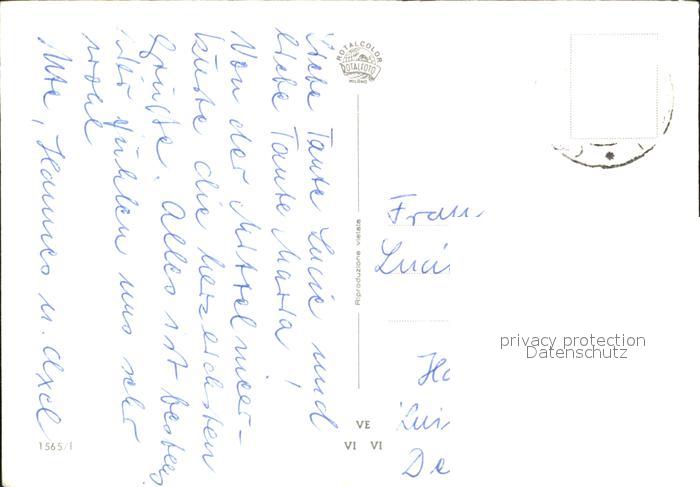 Liebe Tante Lucie und
liebe Tante Maria!
Von der Mittelmeer-
küste die herzlichsten
Grüße. Alles ist bestens
wir fühlen uns sehr
wohl
Ute, Hannes u. Axel
ROTALCOLOR
ROTALFOTO
MILANO
Riproduzione vietata
Frau
privacy protection
Datenschutz
VE
VI VI
1565/I